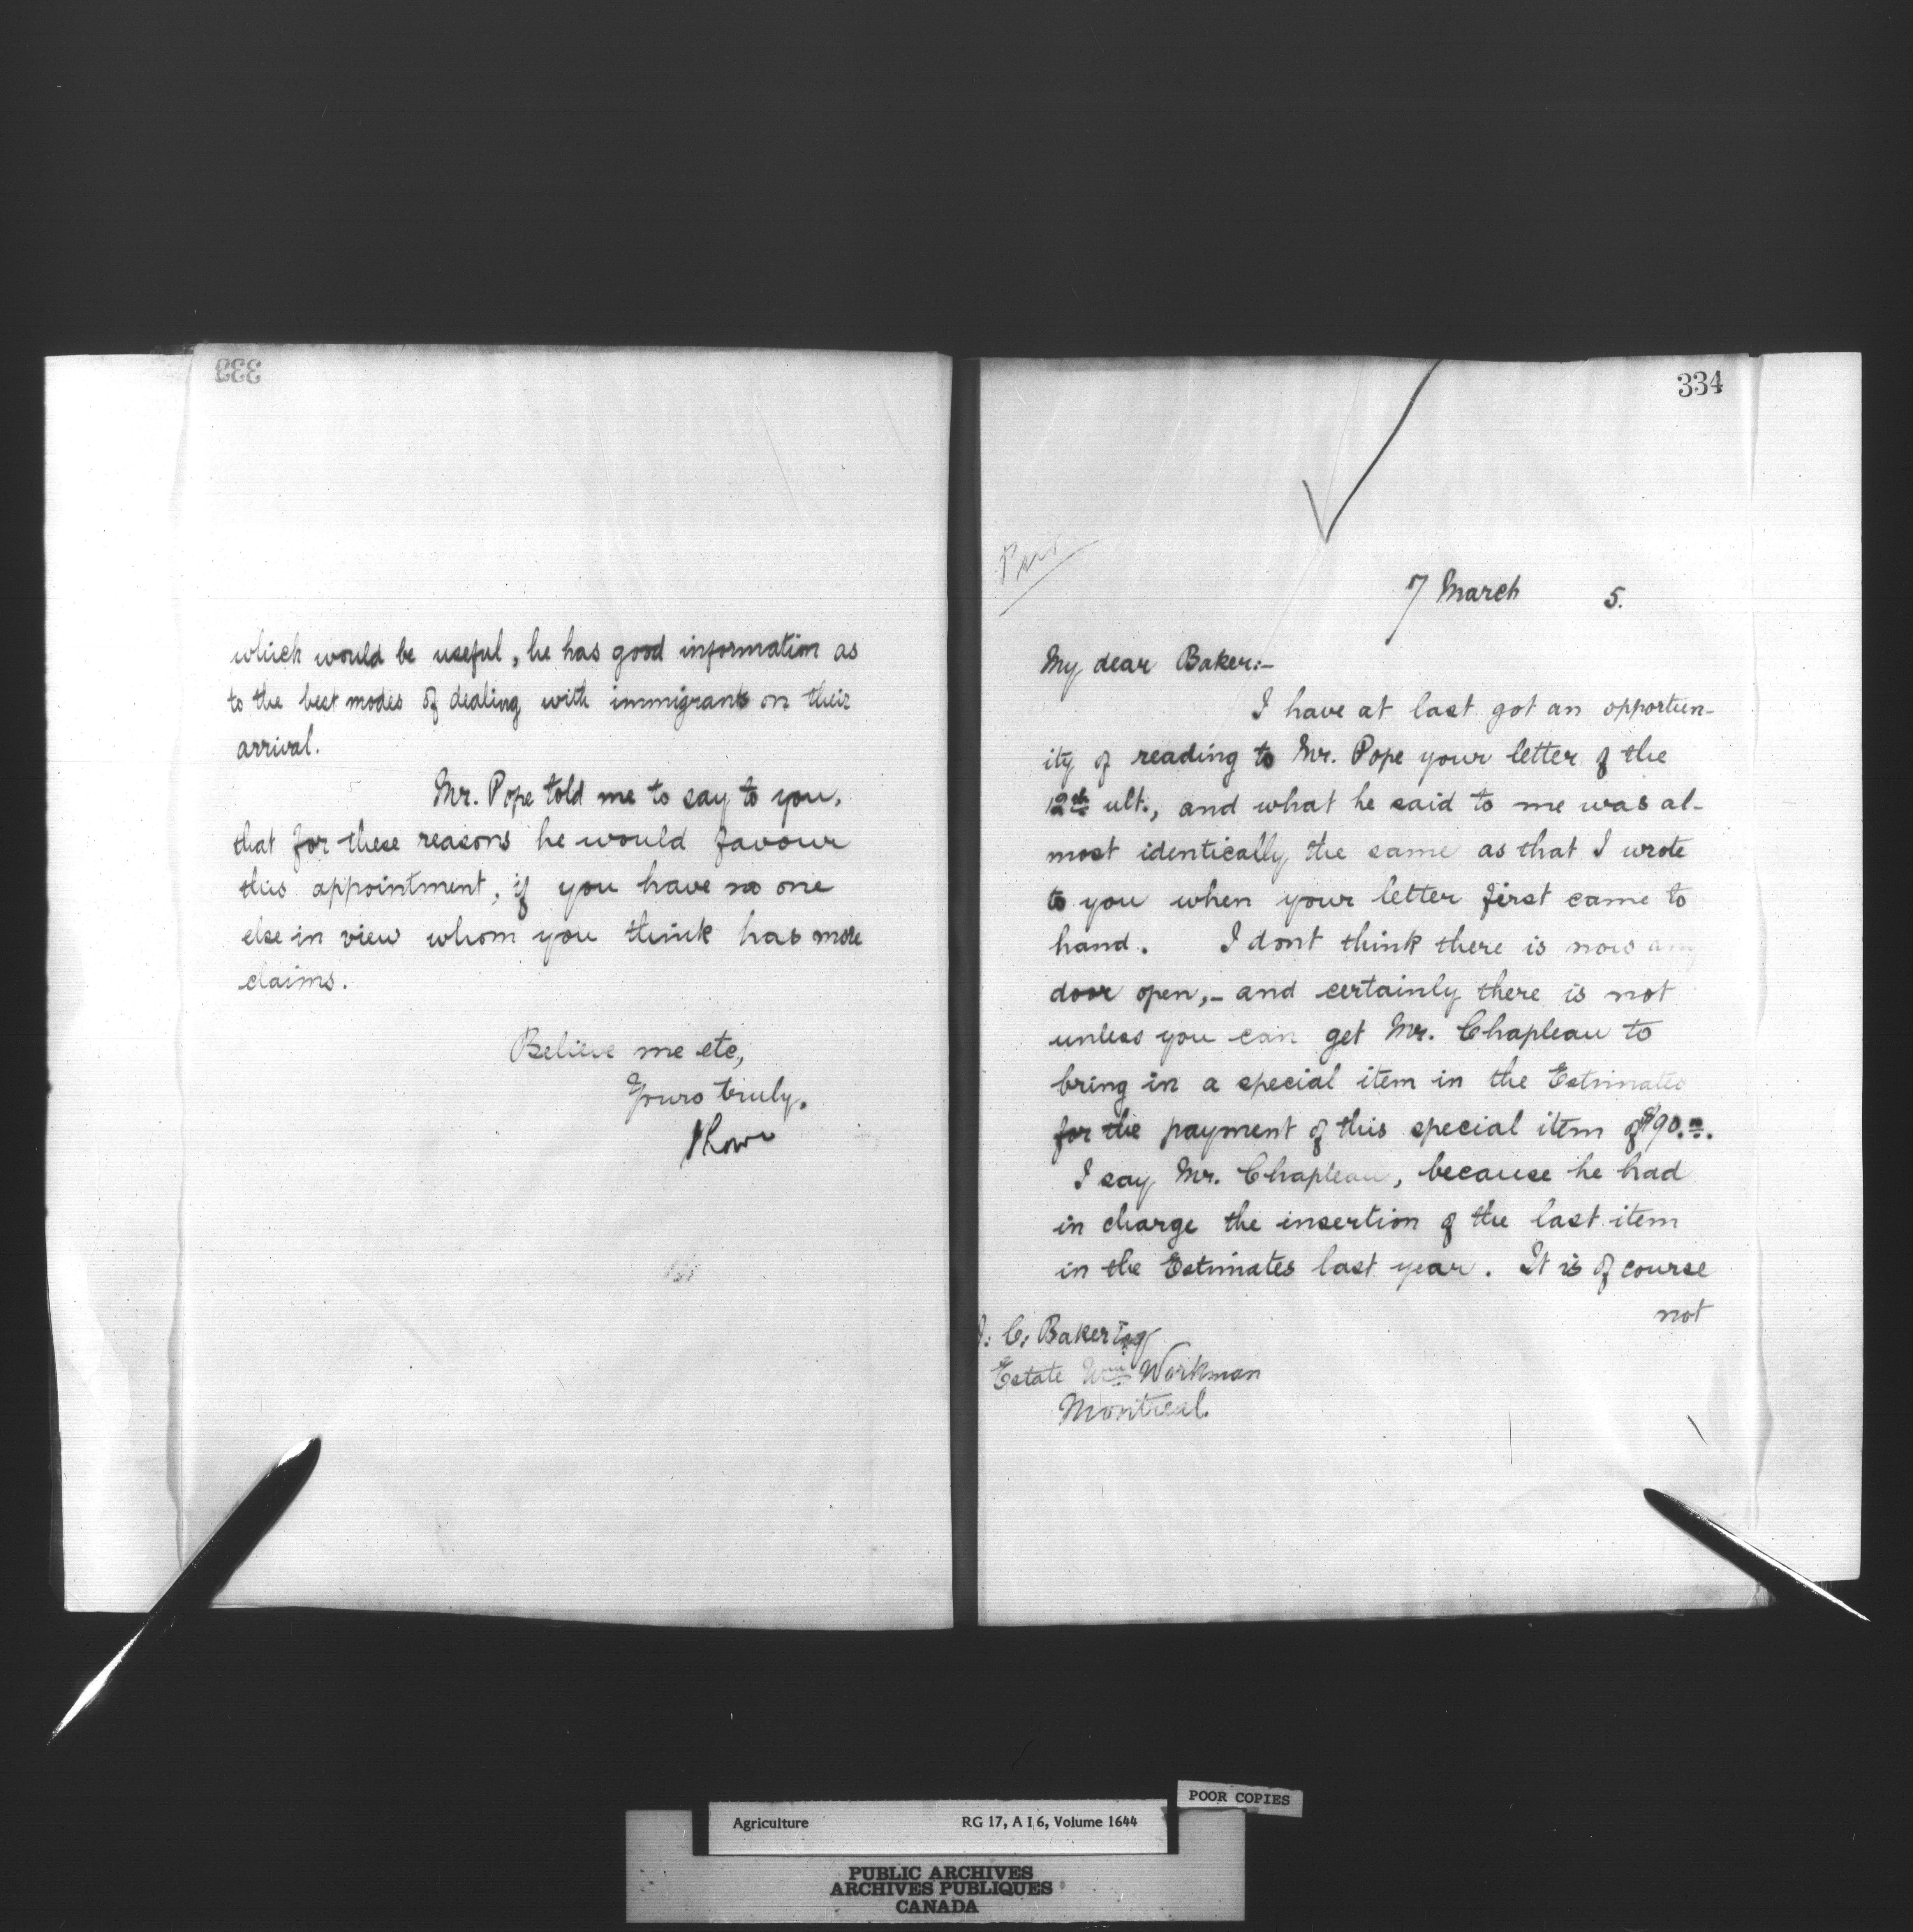 333
which would be useful, he has good information as
to the best modes of dealing with immigrants on their
arrival.
Mr. Pope told me to say to you,
that for these reasons he would favour
this appointment, if you have no one
else in view whom you think has more
claims.
Believe me etc,
Yours truly.
JLowe
334
7 March 5.
My dear Baker:-
I have at last got an opportun-
ity of reading to Mr. Pope your letter of the
12th ult., and what he said to me was al-
most identically the same as that I wrote
to you when your letter first came to
hand. I dont think there is now any
door open,- and certainly there is not
unless you can get Mr. Chapleau to
bring in a special item in the Estimates
for the payment of this special item of $90.00.
I say Mr. Chapleau, because he had
in charge the insertion of the last item
in the Estimates last year. It is of course
not
J. C. Baker Esq
Estate Wm Workman
Montreal.
POOR COPIES
Agriculture RG 17, A I 6, Volume 1644
PUBLIC ARCHIVES
ARCHIVES PUBLIQUES
CANADA